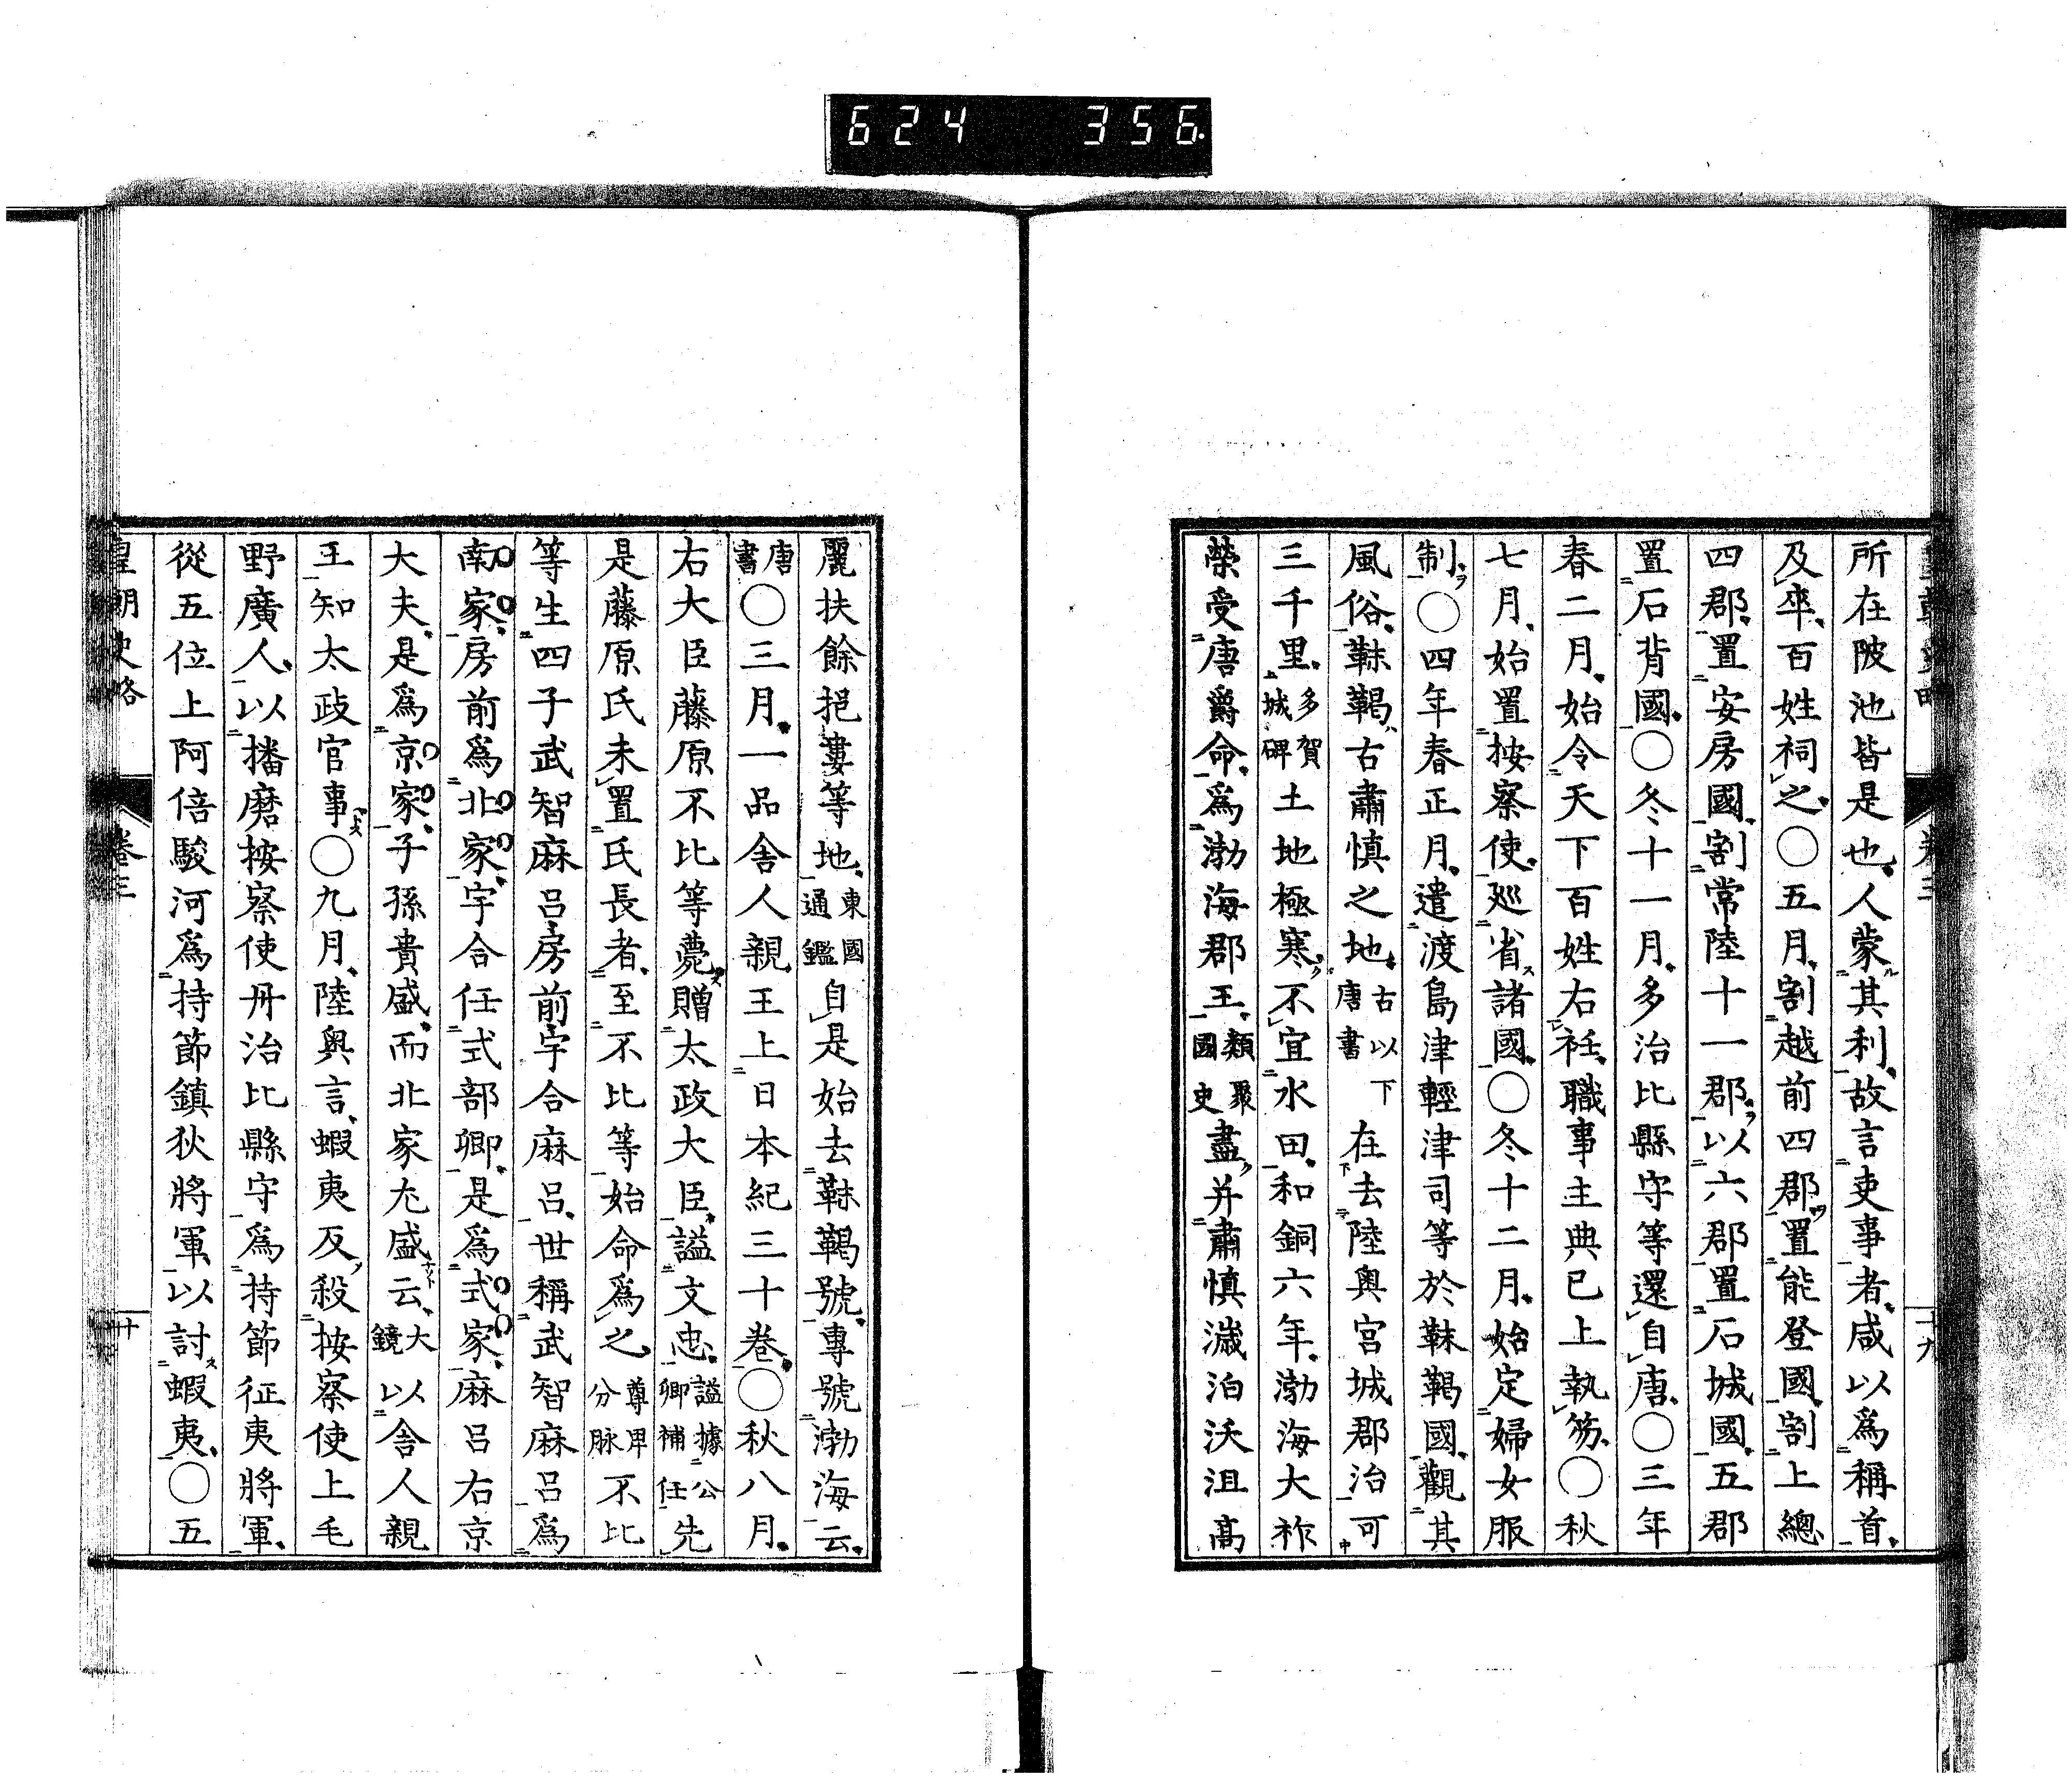 624 356.
所在陂池皆是也人蒙其利故言吏事者咸以爲稱首
及卒百姓祠之〇五月割越前四郡置能登國割上總
四郡置安房國割常陸十一郡以六郡置石城國五郡
置石背國〇冬十一月多治比縣守等還自唐〇三年
春二月始令天下百姓右衽職事主典已上執笏〇秋
七月始置按察使廵省諸國〇冬十二月始定婦女服
制〇四年春正月遣渡島津輕津司等於靺鞨國觀其
風俗靺鞨古肅愼之地古以下唐書在去陸奥宮城郡治可
三千里多賀城碑土地極寒不宜水田和銅六年渤海大祚
榮受唐爵命爲渤海郡王類聚國史盡并肅愼濊泊沃沮高
麗扶餘挹婁等地東國通鑑自是始去靺鞨號專號渤海云
唐書〇三月一品舍人親王上日本紀三十卷〇秋八月
右大臣藤原不比等薨贈太政大臣謚文忠謚據公卿補任先
是藤原氏未置氏長者至不比等始命爲之尊卑分脉不比
等生四子武智麻呂房前宇合麻呂世稱武智麻呂爲
南家房前爲北家宇合任式部卿是爲式家麻呂右京
大夫是爲京家子孫貴盛而北家尤盛云大鏡以舍人親
王知太政官事〇九月陸奥言蝦夷反殺按察使上毛
野廣人以播磨按察使丹治比縣守爲持節征夷將軍
從五位上阿倍駿河爲持節鎮狄將軍以討蝦夷〇五
皇朝史略
卷三
十